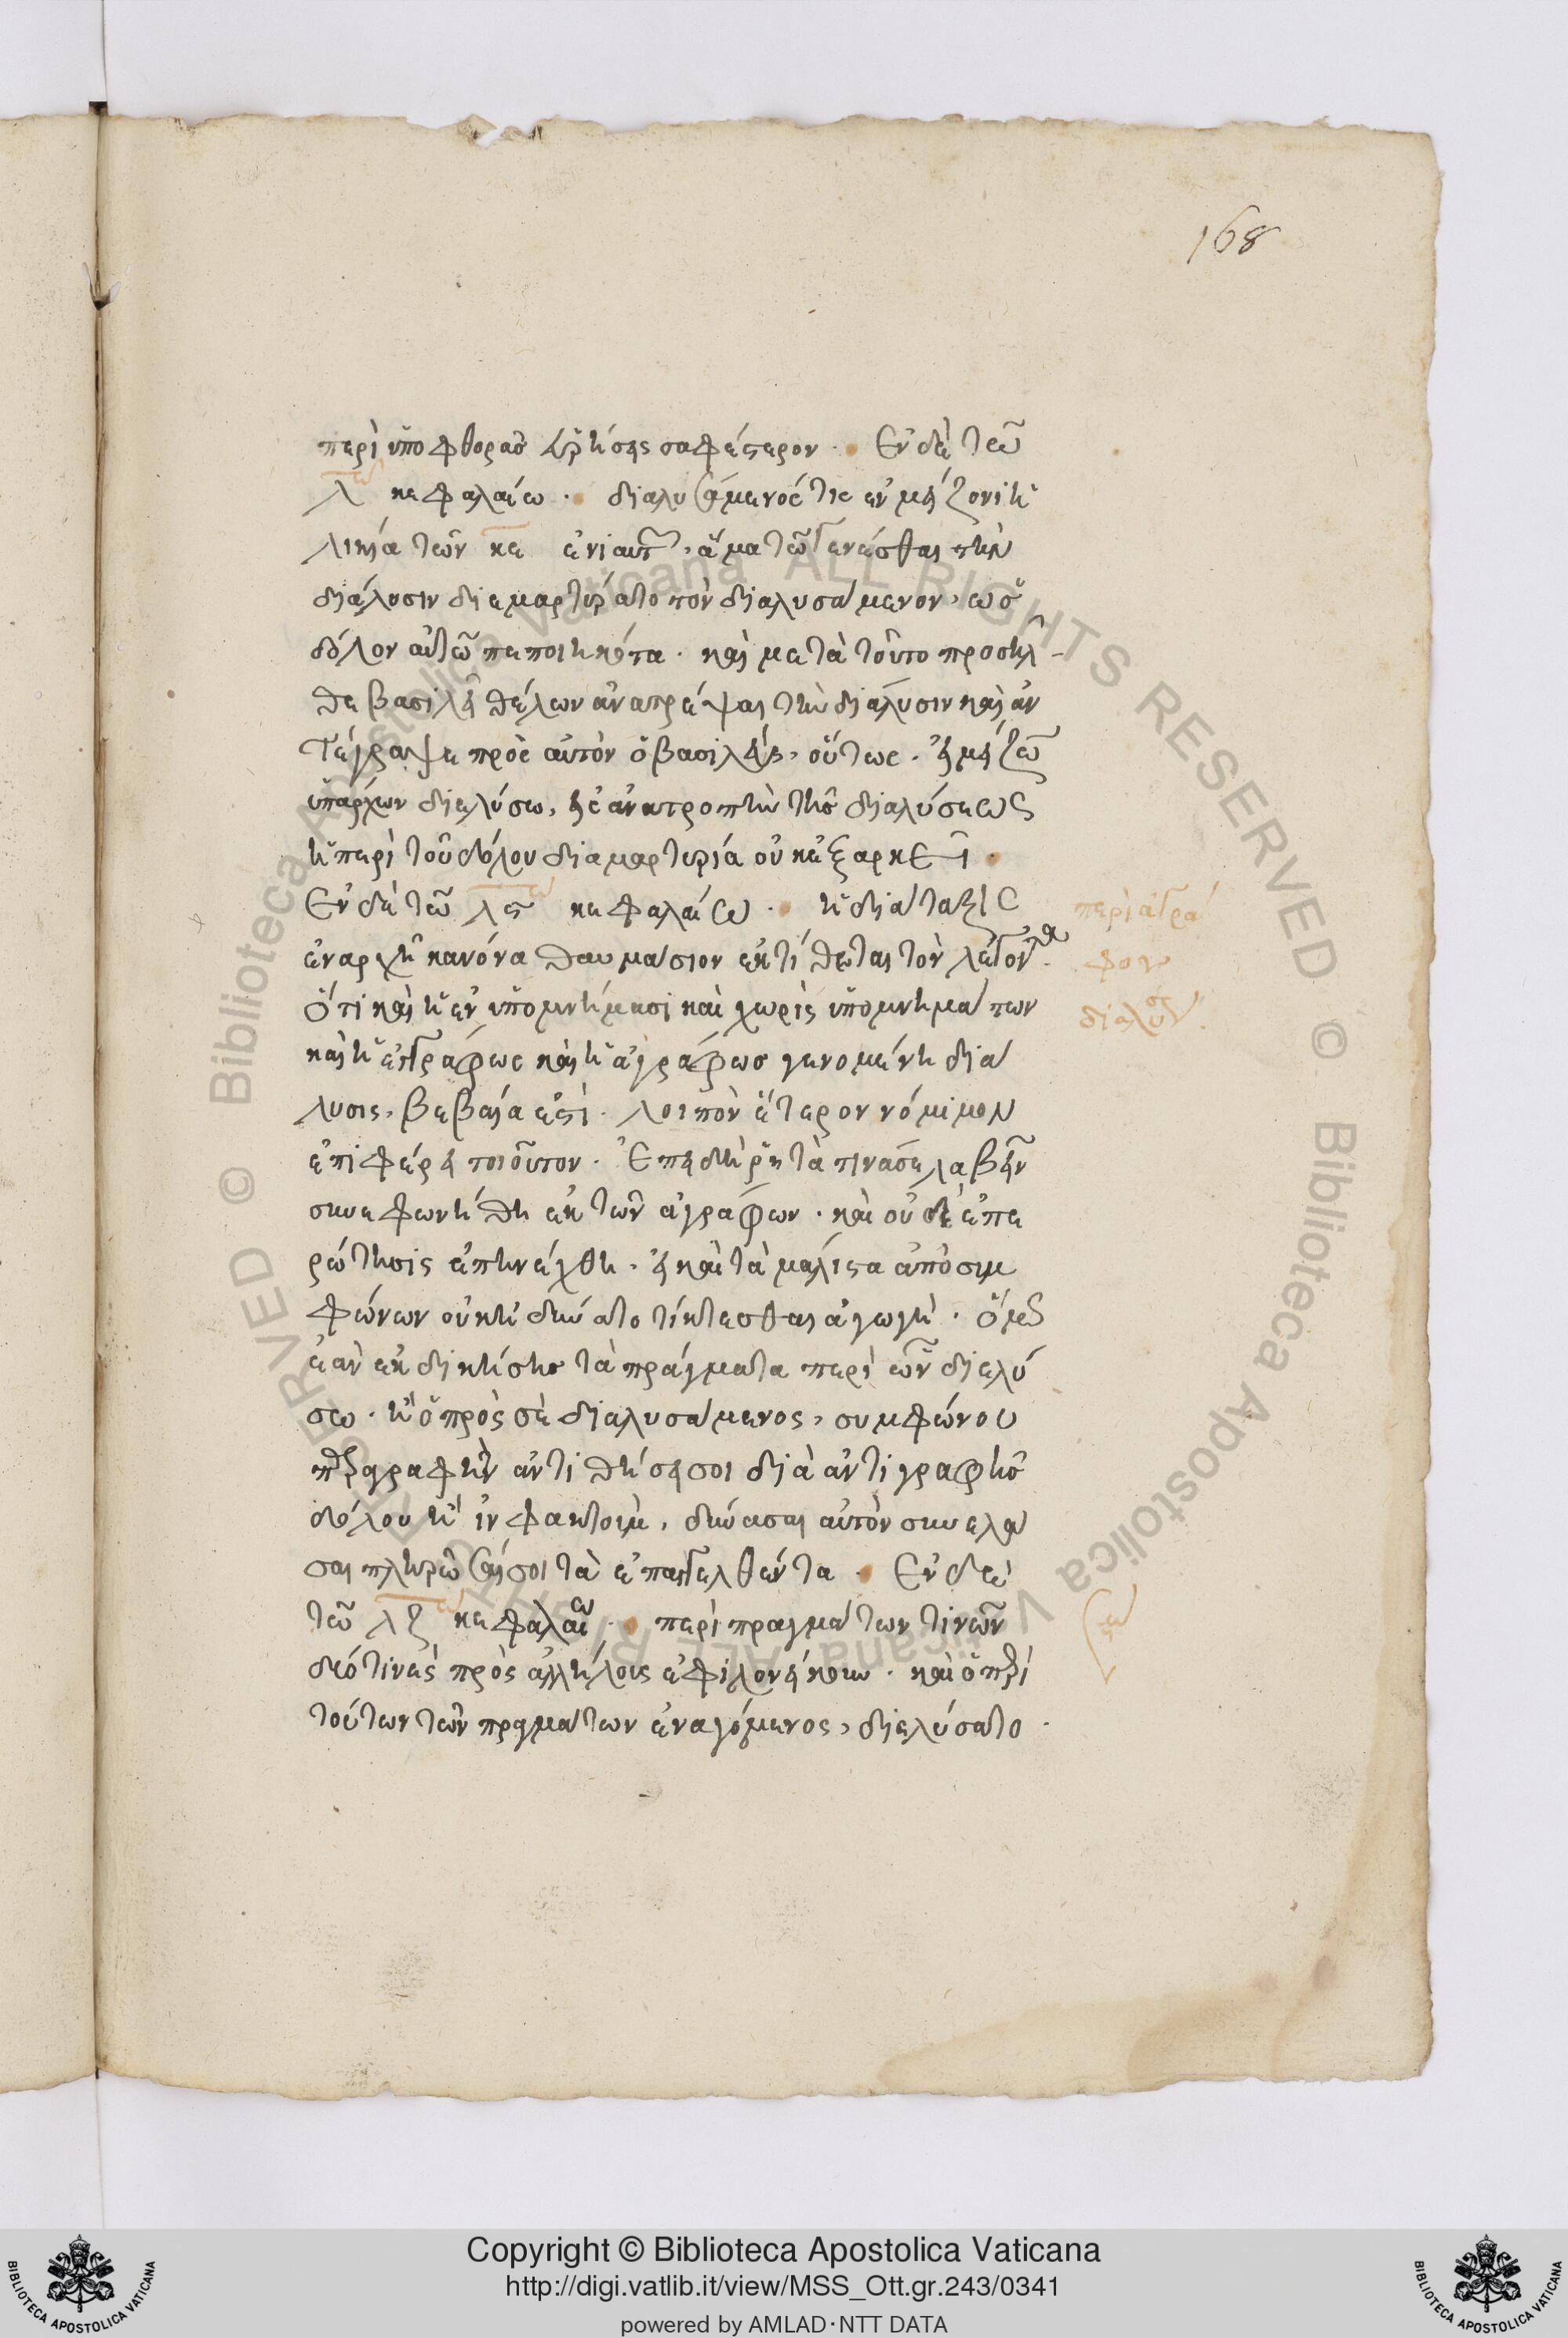 168
περὶ ὑποφθορᾶς εὑρήσεις σαφέστερον · Ἐν δὲ τῶ
λ κεφαλαίω · διαλυσάμενός τις ἐν μείζονι ἡ
λικία τῶν κε ἐνιαυτῶν, ἅμα τῶ γενέσθαι τὴν
διάλυσιν διεμαρτύρατο τὸν διαλυσάμενον, ὡς
δόλον αὐτῶ πεποιηκότα · καὶ μετὰ τοῦτο προσῆλ
θε βασιλεῖ θέλων ἀνατρέψαι τὴν διάλυσιν καὶ ἀν
τέγραψε πρὸς αὐτὸν ὁ βασιλεὺς, οὕτως · εἰ μείζων
ὑπάρχων διελύσω, εἰς ἀνατροπὴν τῆς διαλύσεως
ἡ περὶ τοῦ δόλου διαμαρτυρία οὐκ ἐξαρκεῖ ·
Ἐν δὲ τῶ λς κεφαλαίω · ἡ διάταξις
ἐν ἀρχῆ κανόνα θαυμάσιον ἐκτίθεται τὸν λέγοντα ·
ὅτι καὶ ἡ ἐν ὑπομνήμασι καὶ χωρὶς ὑπομνημάτων
καὶ ἡ ἐγγράφως καὶ ἡ ἀγράφως γενομένη διά
λυσις, βεβαία ἐστὶ · λοιπὸν ἕτερον νόμιμον
ἐπιφέρει τοιοῦτον · Ἐπειδὴ ῥητά τινά σε λαβεῖν
συνεφωνήθη ἐκ τῶν ἀγράφων · καὶ οὐδὲ ἐπε
ρώτησις ἐπηνέχθη · εἰ καὶ τὰ μάλιστα ἀπὸ συμ
φώνων οὐκ ἠδύνατο τίκτεσθαι ἀγωγὴ · ὅμως
ἐὰν ἐκδικήσης τὰ πράγματα περὶ ὧν διελύ
σω · ἢ ὁ πρὸς σὲ διαλυσάμενος, συμφώνου
παραγραφὴν ἀντιθήσει σοι διὰ ἀντιγραφῆς
δόλου ἢ ἰν φακτουμ, δύνασαι αὐτὸν συνελά
σαι πληρῶσαί σοι τὰ ἐπαγγελθέντα · Ἐν δὲ
τῶ λζ κεφαλαίω · περὶ πραγμάτων τινῶν
δύο τινὲς πρὸς ἀλλήλους ἐφιλονείκουν · καὶ ὁ περὶ
τούτων τῶν πραγμάτων ἐναγόμενος, διελύσατο ·
περὶ ἀγρά
φων
διαλύσεων
Copyright © Biblioteca Apostolica Vaticana
http://digi.vatlib.it/view/MSS_Ott.gr.243/0341
powered by AMLAD·NTT DATA
BIBLIOTECA APOSTOLICA VATICANA
BIBLIOTECA APOSTOLICA VATICANA
Biblioteca Apostolica Vaticana ALL RIGHTS RESERVED ©
Biblioteca Apostolica Vaticana ALL RIGHTS RESERVED ©